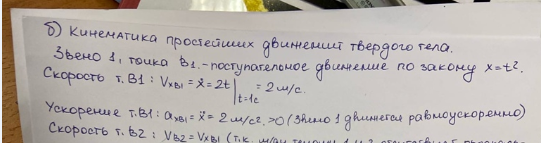 б) Кинематика простейших движений твердого тела.
Звено 1, точка B1 - поступательное движение по закону x=t².
Скорость т. B1: Vxв1 = ẋ = 2t |t=1c = 2 м/с.
Ускорение т. B1: aхв1 = ẍ = 2 м/с² >0 (Звено 1 движется равноускоренно)
Скорость т. B2: Vв2 = Vxв1 (т.к. между